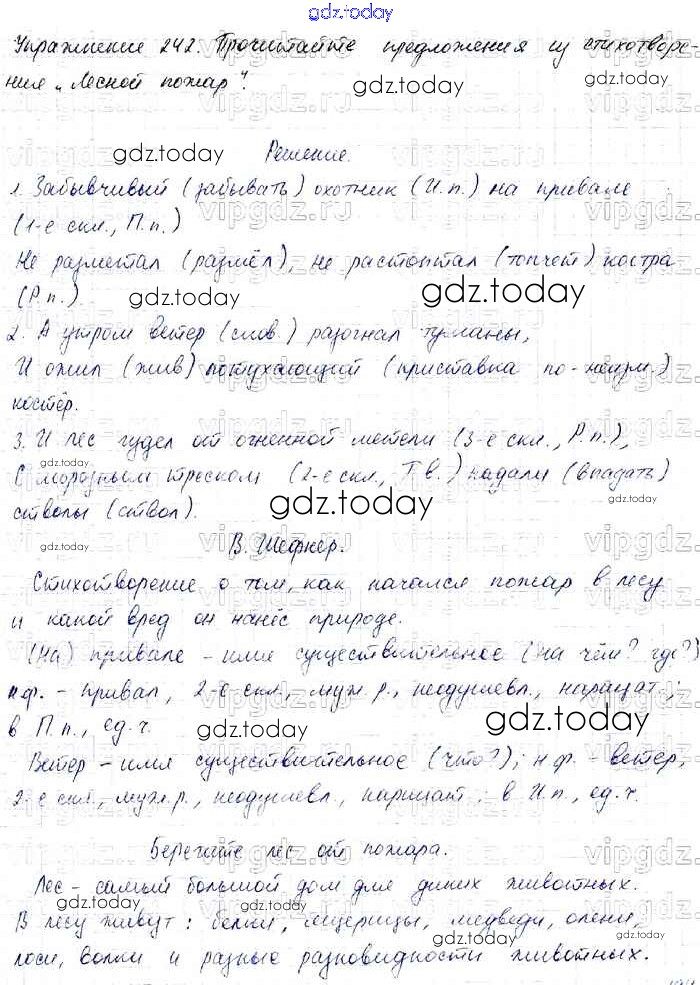 gdz.today
Упражнение 242. Прочитайте предложения из стихотворе-
ния „Лесной пожар".
gdz.today
gdz.today
Решение.
1. Забывчивый (забывать) охотник (И.п.) на привале
(1-е скл., П.п.)
Не разметал (размёл), не растоптал (топчет) костра
(Р.п.)
gdz.today
gdz.today
2. А утром ветер (слов.) разогнал туманы,
И ожил (жив) потухающий (приставка по-неизм.)
костёр.
3. И лес гудел от огненной метели (3-е скл., Р.п.),
gdz.today
С морозным треском (2-е скл., Тв.) падали (впадать)
стволы (ствол).
gdz.today
gdz.today
В. Шефнер.
gdz.today
Стихотворение о том, как начался пожар в лесу
и какой вред он нанёс природе.
(На) привале - имя существительное (на чём? где?)
н.ф. - привал, 2-е скл., муж.р., неодушевл., нарицат.;
в П.п., ед.ч.
gdz.today
gdz.today
Ветер - имя существительное (что?); н.ф. - ветер,
2-е скл., муж.р., неодушевл., нарицат.; в И.п., ед.ч.
Берегите лес от пожара.
Лес - самый большой дом для диких животных.
gdz.today
В лесу живут: белки, ящерицы, медведи, олени,
gdz.today
лоси, волки и разные разновидности животных.
gdz.today